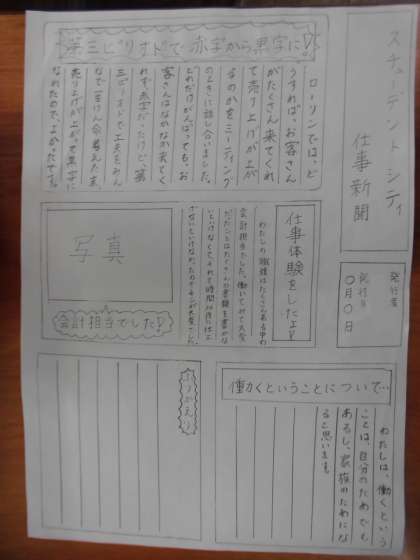 スチューデントシティ
仕事新聞
発行者
発行日
〇月〇日
第三ピリオドで赤字から黒字に!
ローソンでは、ど
うすれば、お客さん
がたくさん来てくれ
て売り上げが上が
るのかをミーティング
のときに話し合いました。
どれだけがんばっても、お
客さんはなかなか来てく
れず赤字だったけど、第
三ピリオドで工夫をみん
なで一生けん命考えた末、
売り上げが上がって黒字に
なれたので、よかったです。
仕事体験をしたよ!
わたしの職種はたくさんある中の
会計担当でした。働いてみて大変
だったことはたくさんの書類を書かな
いといけなくて、それを時間以内には
写真
会計担当でした!
働くということについて…
わたしは、働くという
ことは、自分のためでも
あるし、家族のためにな
ると思います。
ふりかえり